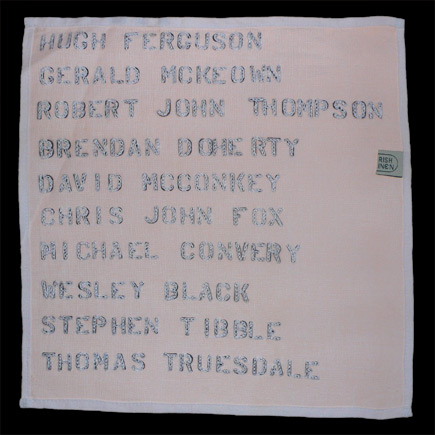 HUGH FERGUSON
GERALD MCKEOWN
ROBERT JOHN THOMPSON
BRENDAN DOHERTY
DAVID MCCONKEY
CHRIS JOHN FOX
MICHAEL CONVERY
WESLEY BLACK
STEPHEN TIBBLE
THOMAS TRUESDALE
RISH
INEN